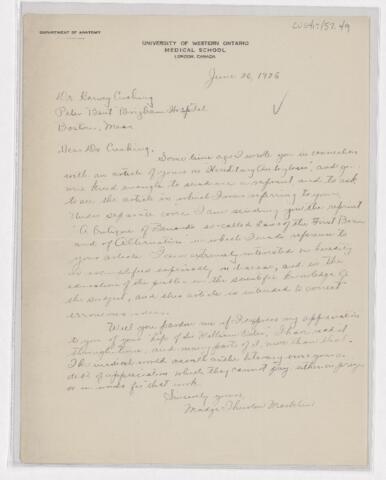 DEPARTMENT OF ANATOMY
UNIVERSITY OF WESTERN ONTARIO
MEDICAL SCHOOL
LONDON, CANADA
June 26, 1926
Dr Harvey Cushing
Peter Bent Brigham Hospital
Boston, Mass
Dear Dr Cushing,
Some time ago I wrote you in connection
with an article of yours on "Hereditary Ankylosis", and you
were kind enough to send me a reprint and to ask
to see the article in which I was referring to yours.
Under separate cover I am sending you the reprint
"A Critique of so-called Laws of the First Born
and of Alternation" in which I made reference to
your article. I am extremely interested in heredity
in especially in disease, and in the
education of the public in the scientific knowledge of
the subject, and this article is intended to correct
erroneous ideas.
Will you pardon me if I express my appreciation
to you of your "Life of Sir William Osler". I have read it
through twice, and many parts of it more than that.
The medical world as well as the literary owes you a
debt of appreciation which they cannot pay either in praise
or in words for that work.
Sincerely yours,
Madge Thurlow Macklin